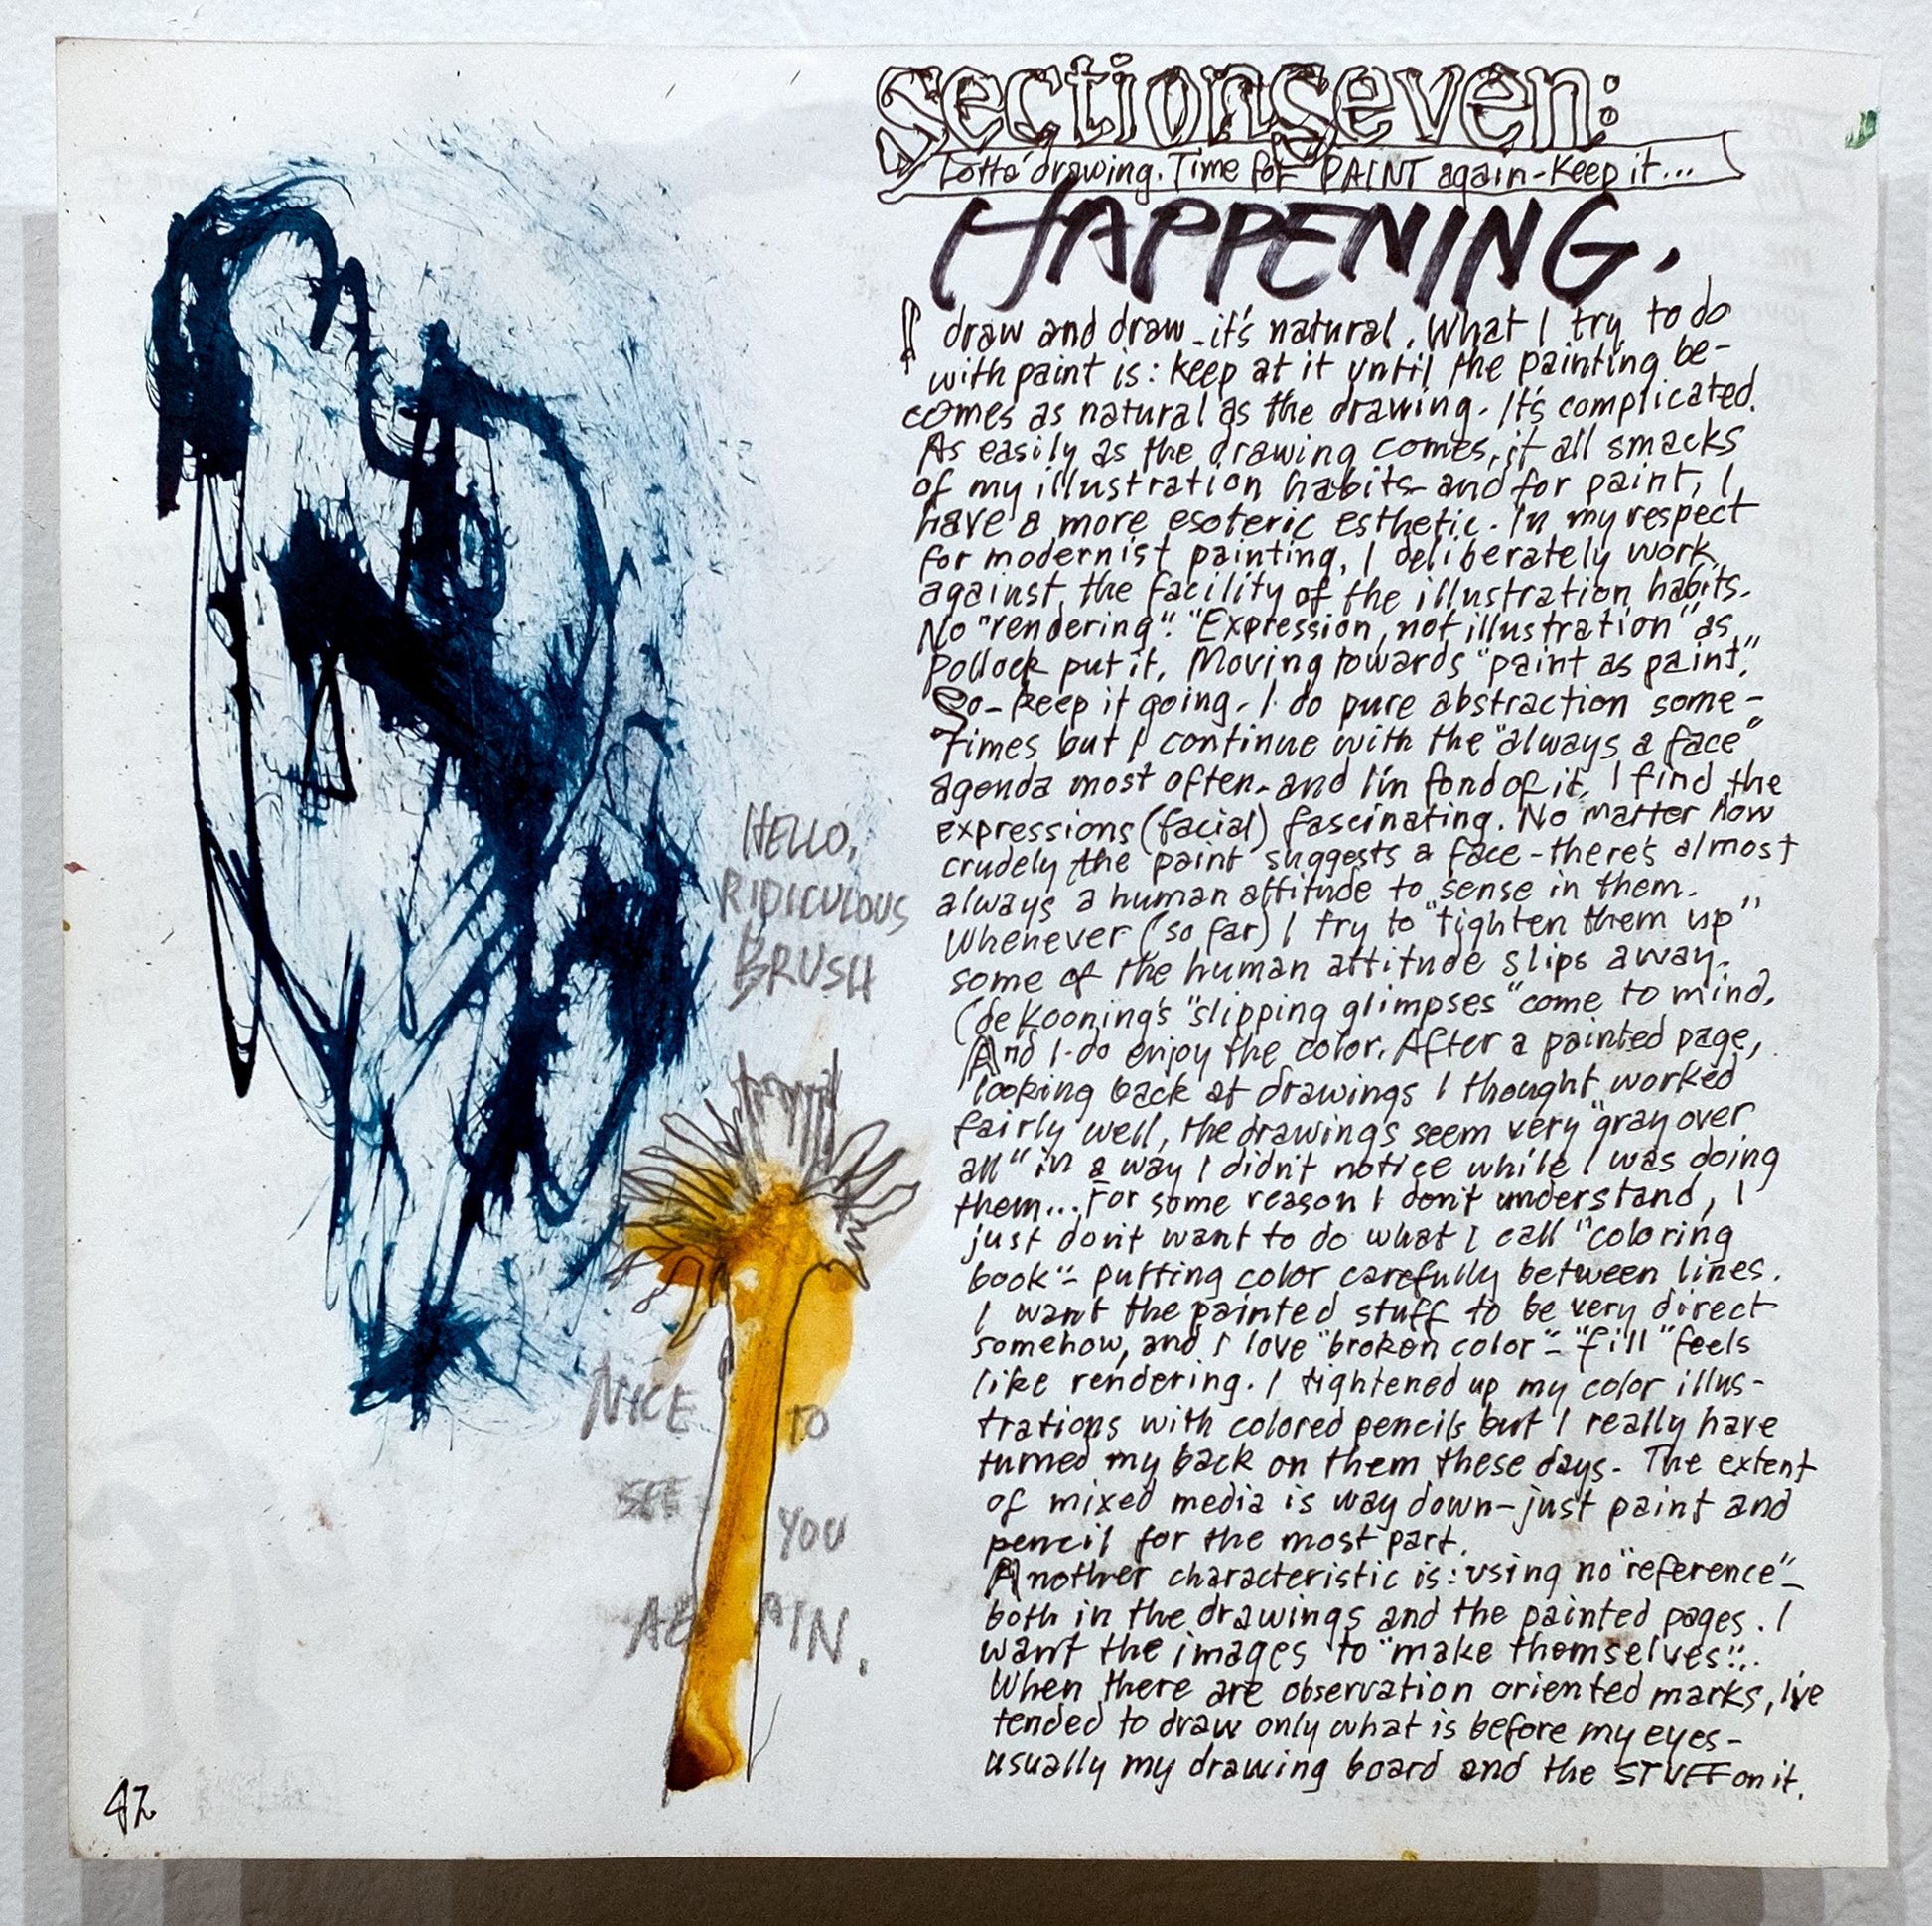 section seven:
Lotta drawing. Time for PAINT again-Keep it...
HAPPENING.
I draw and draw-it's natural. What I try to do
with paint is: keep at it until the painting be-
comes as natural as the drawing. It's complicated.
As easily as the drawing comes, it all smacks
of my illustration habits-and for paint, I
have a more esoteric esthetic. In my respect
for modernist painting, I deliberately work
against the facility of the illustration habits.
No "rendering". "Expression, not illustration" as
Pollock put it. Moving towards "paint as paint".
So-keep it going. I do pure abstraction some-
times but I continue with the "always a face"
agenda most often-and I'm fond of it. I find the
expressions (facial) fascinating. No matter how
crudely the paint suggests a face-there's almost
always a human attitude to sense in them.
Whenever (so far) I try to "tighten them up"
some of the human attitude slips away.
(deKooning's "slipping glimpses" come to mind.
And I do enjoy the color. After a painted page,
looking back at drawings I thought worked
fairly well, the drawings seem very "gray over
all" in a way I didn't notice while I was doing
them... For some reason I don't understand, I
just don't want to do what I call "coloring
book"- putting color carefully between lines.
I want the painted stuff to be very direct
somehow, and I love "broken color"- "fill" feels
like rendering. I tightened up my color illus-
trations with colored pencils but I really have
turned my back on them these days. The extent
of mixed media is way down-just paint and
pencil for the most part.
Another characteristic is: using no "reference"-
both in the drawings and the painted pages. I
want the images to "make themselves"...
When there are observation oriented marks, I've
tended to draw only what is before my eyes-
usually my drawing board and the STUFF on it.
HELLO,
RIDICULOUS
BRUSH
NICE TO
SEE YOU
AGAIN.